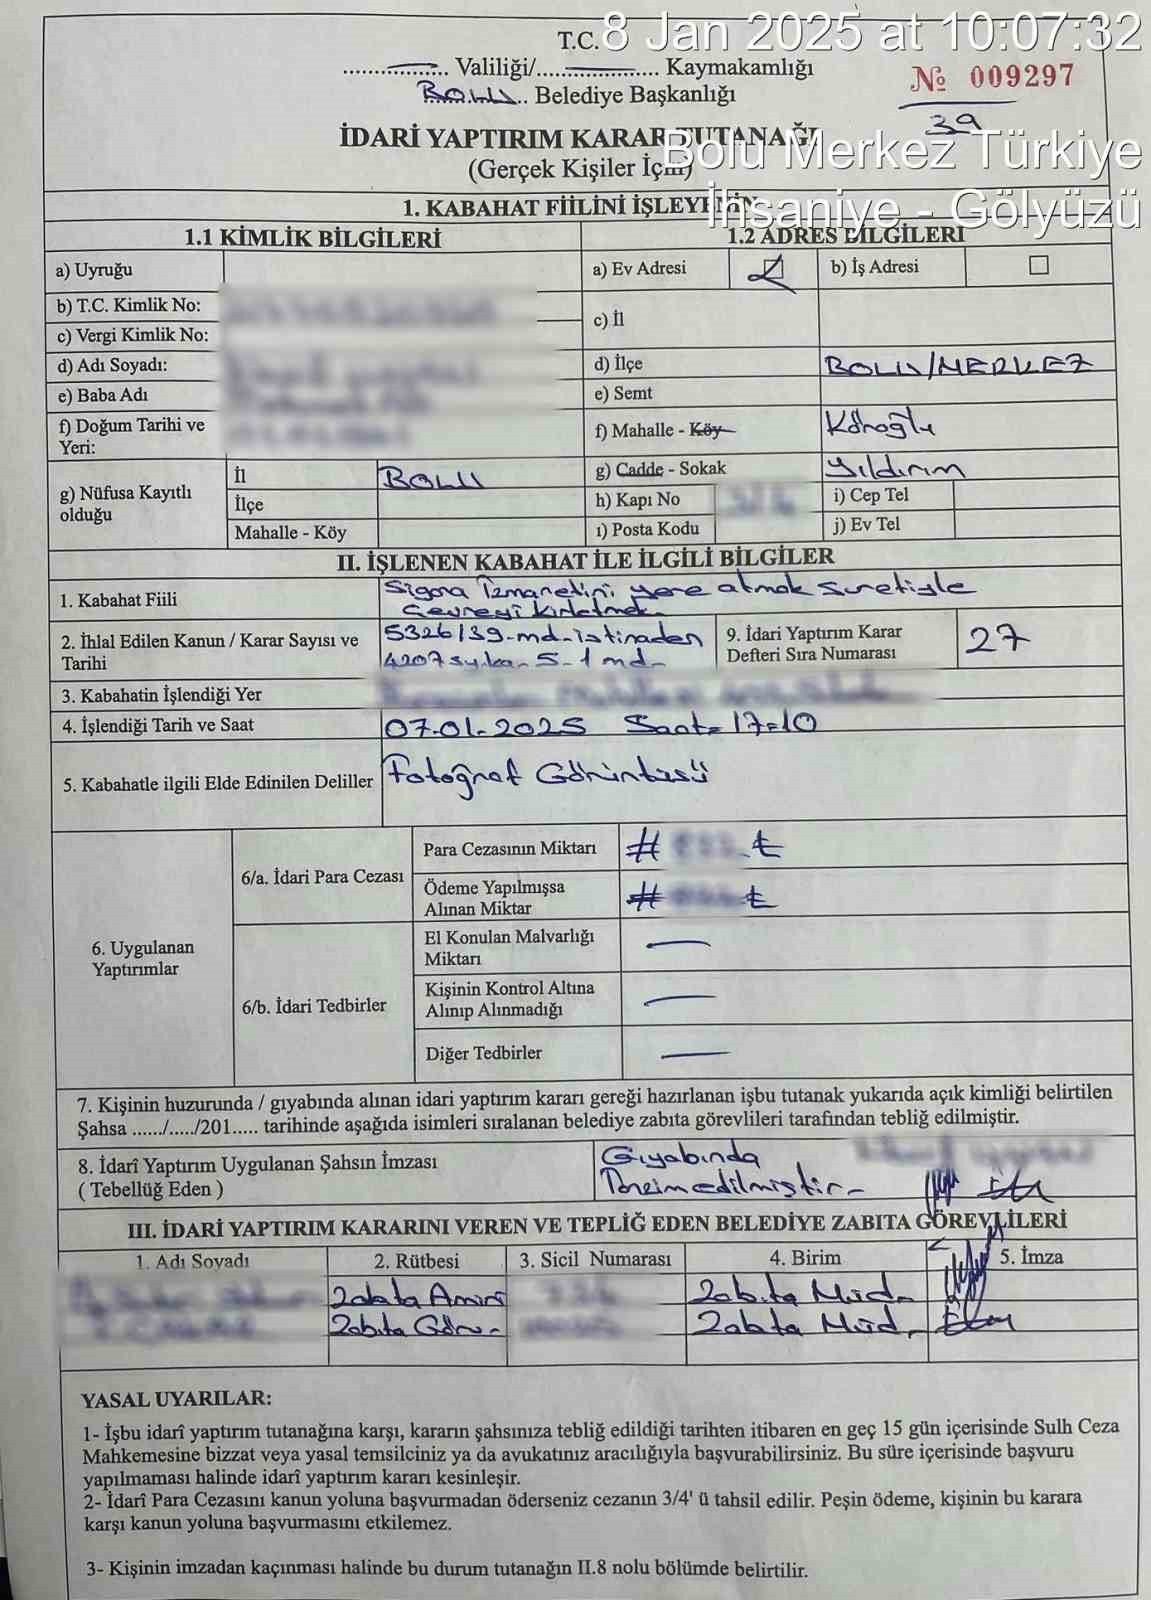 8 Jan 2025 at 10:07:32
Bolu Merkez Türkiye
İhsaniye - Gölyüzü
T.C.
Valiliği/ Kaymakamlığı
№ 009297
BOLU Belediye Başkanlığı
39
İDARİ YAPTIRIM KARAR TUTANAĞI
(Gerçek Kişiler İçin)
1. KABAHAT FİİLİNİ İŞLEYENİN
1.1 KİMLİK BİLGİLERİ
1.2 ADRES BİLGİLERİ
a) Uyruğu
a) Ev Adresi
b) İş Adresi
b) T.C. Kimlik No:
c) Vergi Kimlik No:
c) İl
d) Adı Soyadı:
d) İlçe BOLU/MERKEZ
e) Baba Adı
e) Semt
f) Doğum Tarihi ve
Yeri:
f) Mahalle - Köy Köroğlu
g) Nüfusa Kayıtlı
olduğu
İl BOLU
İlçe
Mahalle - Köy
g) Cadde - Sokak Yıldırım
h) Kapı No
i) Cep Tel
ı) Posta Kodu
j) Ev Tel
II. İŞLENEN KABAHAT İLE İLGİLİ BİLGİLER
1. Kabahat Fiili
Sigara İzmaretini yere atmak suretiyle
Çevreyi kirletmek.
2. İhlal Edilen Kanun / Karar Sayısı ve
Tarihi
5326/39-md-istinaden
4207 sy.ka-5-1 md-
9. İdari Yaptırım Karar
Defteri Sıra Numarası
27
3. Kabahatin İşlendiği Yer
4. İşlendiği Tarih ve Saat 07.01.2025 Saat- 17-10
5. Kabahatle ilgili Elde Edinilen Deliller Fotoğraf Görüntüsü
6. Uygulanan
Yaptırımlar
6/a. İdari Para Cezası
Para Cezasının Miktarı # ₺
Ödeme Yapılmışsa
Alınan Miktar # ₺
6/b. İdari Tedbirler
El Konulan Malvarlığı
Miktarı
Kişinin Kontrol Altına
Alınıp Alınmadığı
Diğer Tedbirler
7. Kişinin huzurunda / gıyabında alınan idari yaptırım kararı gereği hazırlanan işbu tutanak yukarıda açık kimliği belirtilen
Şahsa ....../...../201..... tarihinde aşağıda isimleri sıralanan belediye zabıta görevlileri tarafından tebliğ edilmiştir.
8. İdarî Yaptırım Uygulanan Şahsın İmzası
( Tebellüğ Eden )
Gıyabında
Tanzim edilmiştir-
III. İDARİ YAPTIRIM KARARINI VEREN VE TEPLİĞ EDEN BELEDİYE ZABITA GÖREVLİLERİ
1. Adı Soyadı
2. Rütbesi
3. Sicil Numarası
4. Birim
5. İmza
Zabıta Amiri
Zabıta Müd-
Zabıta Görv-
Zabıta Müd-
YASAL UYARILAR:
1- İşbu idarî yaptırım tutanağına karşı, kararın şahsınıza tebliğ edildiği tarihten itibaren en geç 15 gün içerisinde Sulh Ceza
Mahkemesine bizzat veya yasal temsilciniz ya da avukatınız aracılığıyla başvurabilirsiniz. Bu süre içerisinde başvuru
yapılmaması halinde idarî yaptırım kararı kesinleşir.
2- İdarî Para Cezasını kanun yoluna başvurmadan öderseniz cezanın 3/4' ü tahsil edilir. Peşin ödeme, kişinin bu karara
karşı kanun yoluna başvurmasını etkilemez.
3- Kişinin imzadan kaçınması halinde bu durum tutanağın II.8 nolu bölümde belirtilir.